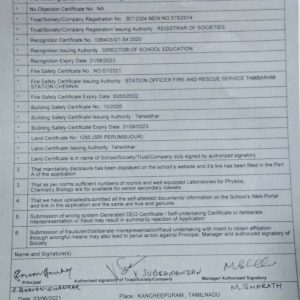 No Objection Certificate No. NA
Trust/Society/Company Registration No. 367/2004 NEW NO 578/2014
Trust/Society/Company Registration Issuing Authority REGISTRAR OF SOCIETIES
Recognition Certificate No. /G1-S4 2020
Recognition Issuing Authority DIRECTOR OF SCHOOL EDUCATION
Recognition Expiry Date 31/08/2023
Fire Safety Certificate No NO 61/2021
Fire Safety Certificate Issuing Authority STATION OFFICER FIRE AND RESCUE SERVICE TAMBARAM
STATION CHENNAI
Fire Safety Certificate Expiry Date 30/05/2022
Building Safety Certificate No. 10/2020
Building Safety Certificate Issuing Authority Tehsildhar
Building Safety Certificate Expiry Date 31/08/2023
Land Certificate No. 1285 (SRI PERUMBUDUR)
Land Certificate Issuing Authority Tehsildhar
Land Certificate is in name of School/Society/Trust/Company duly signed by authorized signatory
2 That mandatory disclosure has been displayed on the school's website and it's link has been filled in the Part
A of the application
3 That as per norms sufficient number of rooms and well equipped Laboratories for Physics,
Chemistry Biology are for available for senior secondary classes.
4 That we have uploaded/submitted all the self-attested documental information on the School's Web-Portal
and link in the application and the same are true and genuine.
5 Submission of wrong system Generated DEO Certificate / Self-undertaking Certificate or deliberate
misrepresentation or fraud may result in summarily rejection of Application
6 Submission of fraudulent/deliberate misrepresentation/fraud undertaking with intent to obtain affiliation
through wrongful means may also lead to penal action against Principal, Manager and authorised signatory of
School.
V. SUBRAMANIAN
Principal
Authorized signatory of Trust/Society/Company
Manager/Authorised Signatory
M. BHARATH
Date: 23/08/2021
Place: KANCHEEPURAM, TAMILNADU